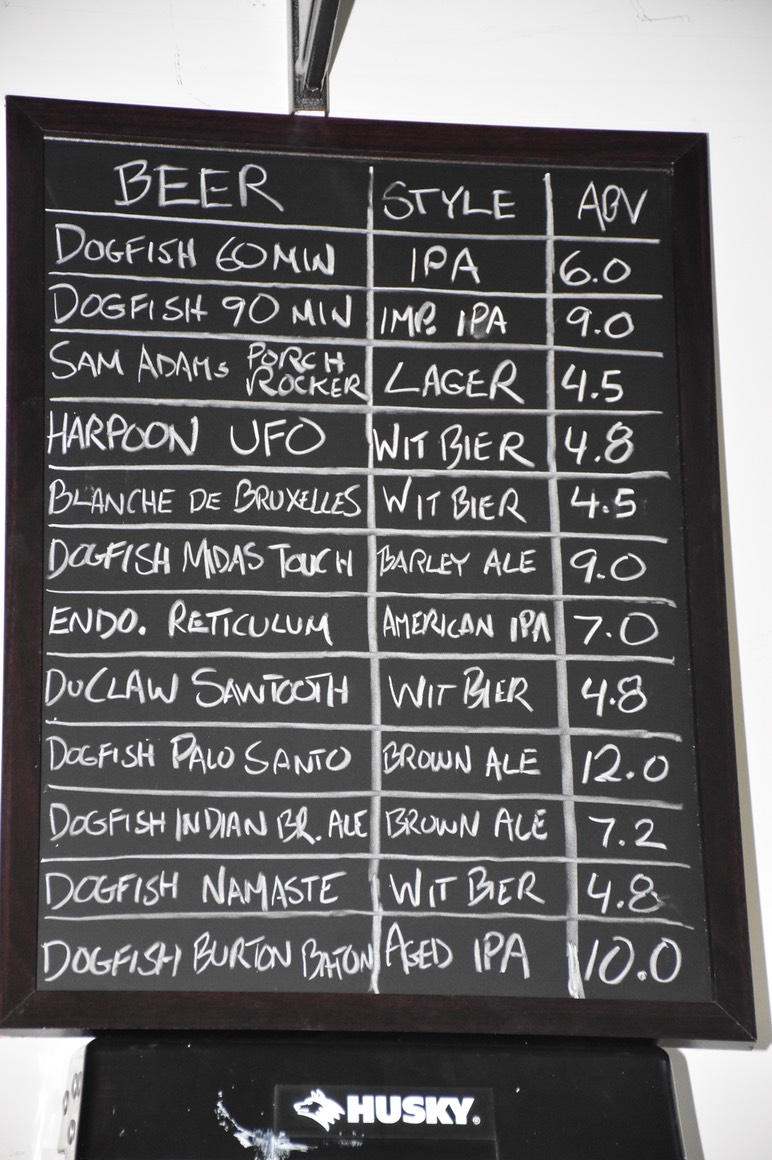 BEER STYLE ABV
DOGFISH 60 MIN IPA 6.0
DOGFISH 90 MIN IMP. IPA 9.0
SAM ADAMS PORCH ROCKER LAGER 4.5
HARPOON UFO WIT BIER 4.8
BLANCHE DE BRUXELLES WIT BIER 4.5
DOGFISH MIDAS TOUCH BARLEY ALE 9.0
ENDO. RETICULUM AMERICAN IPA 7.0
DUCLAW SAWTOOTH WIT BIER 4.8
DOGFISH PALO SANTO BROWN ALE 12.0
DOGFISH INDIAN BR. ALE BROWN ALE 7.2
DOGFISH NAMASTE WIT BIER 4.8
DOGFISH BURTON BATON AGED IPA 10.0
HUSKY